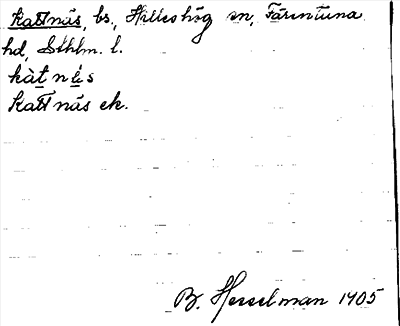 Kattnäs, bs., Hilleshög sn, Färentuna
hd, Sthlm. l.
kàt nès
Kattnäs ek.
B. Hesselman 1905